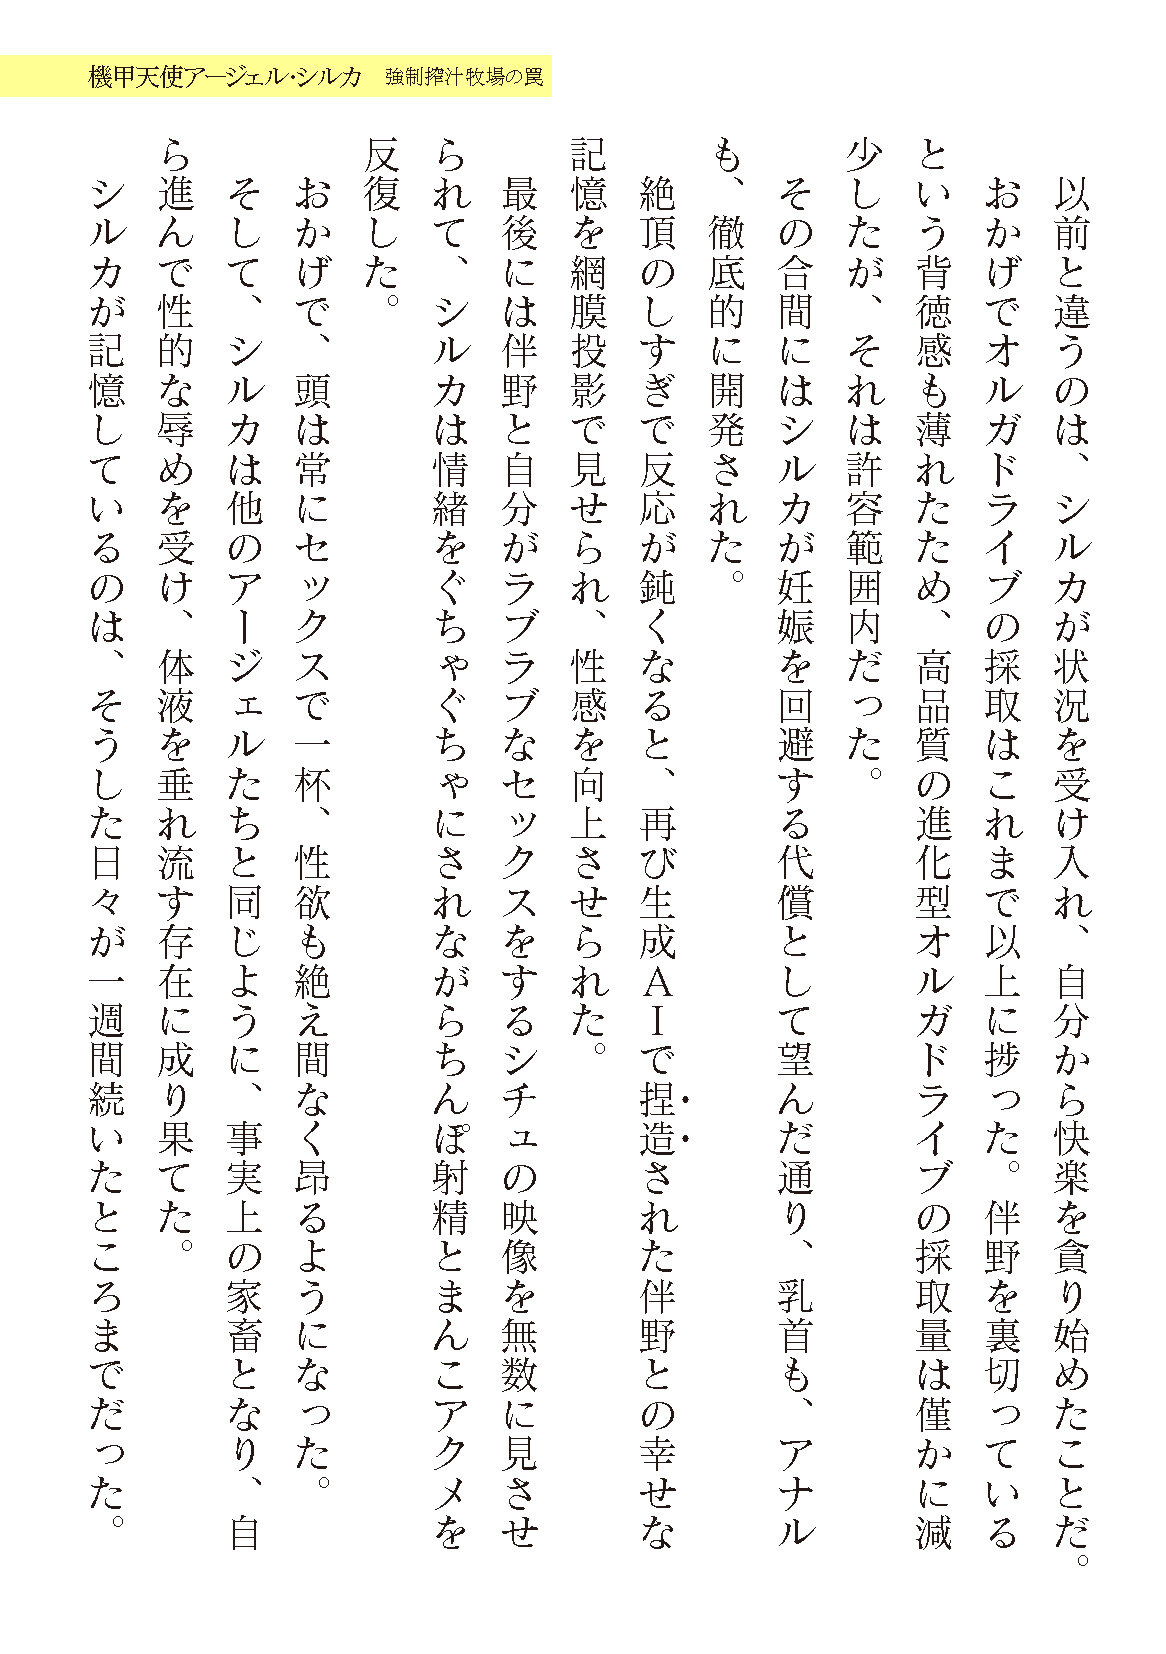 機甲天使アージェル・シルカ　強制搾汁牧場の罠
　以前と違うのは、シルカが状況を受け入れ、自分から快楽を貪り始めたことだ。
　おかげでオルガドライブの採取はこれまで以上に捗った。伴野を裏切っている
という背徳感も薄れたため、高品質の進化型オルガドライブの採取量は僅かに減
少したが、それは許容範囲内だった。
　その合間にはシルカが妊娠を回避する代償として望んだ通り、乳首も、アナル
も、徹底的に開発された。
　絶頂のしすぎで反応が鈍くなると、再び生成ＡＩで捏造された伴野との幸せな
記憶を網膜投影で見せられ、性感を向上させられた。
　最後には伴野と自分がラブラブなセックスをするシチュの映像を無数に見させ
られて、シルカは情緒をぐちゃぐちゃにされながらちんぽ射精とまんこアクメを
反復した。
　おかげで、頭は常にセックスで一杯、性欲も絶え間なく昂るようになった。
　そして、シルカは他のアージェルたちと同じように、事実上の家畜となり、自
ら進んで性的な辱めを受け、体液を垂れ流す存在に成り果てた。
　シルカが記憶しているのは、そうした日々が一週間続いたところまでだった。